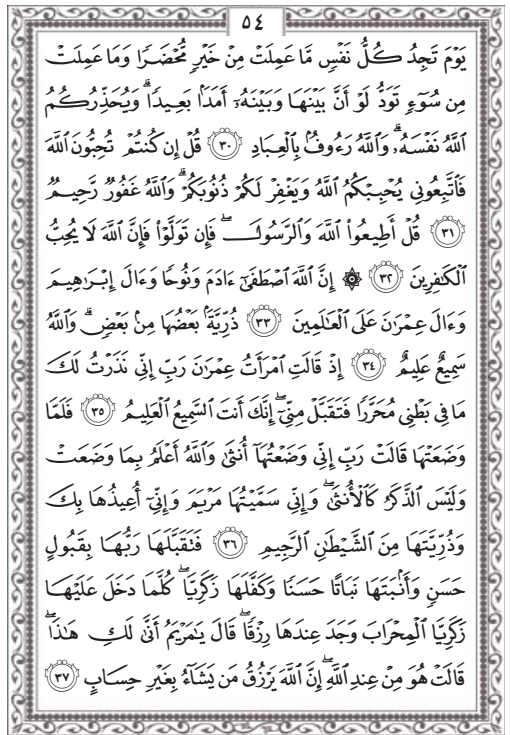 ٥٤
يَوْمَ تَجِدُ كُلُّ نَفْسٍ مَّا عَمِلَتْ مِنْ خَيْرٍ مُّحْضَرًا وَمَا عَمِلَتْ
مِن سُوٓءٍ تَوَدُّ لَوْ أَنَّ بَيْنَهَا وَبَيْنَهُۥٓ أَمَدَۢا بَعِيدًاۗ وَيُحَذِّرُكُمُ
ٱللَّهُ نَفْسَهُۥۗ وَٱللَّهُ رَءُوفُۢ بِٱلْعِبَادِ ٣٠ قُلْ إِن كُنتُمْ تُحِبُّونَ ٱللَّهَ
فَٱتَّبِعُونِى يُحْبِبْكُمُ ٱللَّهُ وَيَغْفِرْ لَكُمْ ذُنُوبَكُمْۗ وَٱللَّهُ غَفُورٌ رَّحِيمٌ
٣١ قُلْ أَطِيعُوا۟ ٱللَّهَ وَٱلرَّسُولَۖ فَإِن تَوَلَّوْا۟ فَإِنَّ ٱللَّهَ لَا يُحِبُّ
ٱلْكَٰفِرِينَ ٣٢ ۞ إِنَّ ٱللَّهَ ٱصْطَفَىٰٓ ءَادَمَ وَنُوحًا وَءَالَ إِبْرَٰهِيمَ
وَءَالَ عِمْرَٰنَ عَلَى ٱلْعَٰلَمِينَ ٣٣ ذُرِّيَّةَۢ بَعْضُهَا مِنۢ بَعْضٍۗ وَٱللَّهُ
سَمِيعٌ عَلِيمٌ ٣٤ إِذْ قَالَتِ ٱمْرَأَتُ عِمْرَٰنَ رَبِّ إِنِّى نَذَرْتُ لَكَ
مَا فِى بَطْنِى مُحَرَّرًا فَتَقَبَّلْ مِنِّىٓۖ إِنَّكَ أَنتَ ٱلسَّمِيعُ ٱلْعَلِيمُ ٣٥ فَلَمَّا
وَضَعَتْهَا قَالَتْ رَبِّ إِنِّى وَضَعْتُهَآ أُنثَىٰ وَٱللَّهُ أَعْلَمُ بِمَا وَضَعَتْ
وَلَيْسَ ٱلذَّكَرُ كَٱلْأُنثَىٰۖ وَإِنِّى سَمَّيْتُهَا مَرْيَمَ وَإِنِّىٓ أُعِيذُهَا بِكَ
وَذُرِّيَّتَهَا مِنَ ٱلشَّيْطَٰنِ ٱلرَّجِيمِ ٣٦ فَتَقَبَّلَهَا رَبُّهَا بِقَبُولٍ
حَسَنٍ وَأَنۢبَتَهَا نَبَاتًا حَسَنًا وَكَفَّلَهَا زَكَرِيَّاۖ كُلَّمَا دَخَلَ عَلَيْهَا
زَكَرِيَّا ٱلْمِحْرَابَ وَجَدَ عِندَهَا رِزْقًاۖ قَالَ يَٰمَرْيَمُ أَنَّىٰ لَكِ هَٰذَاۖ
قَالَتْ هُوَ مِنْ عِندِ ٱللَّهِۖ إِنَّ ٱللَّهَ يَرْزُقُ مَن يَشَآءُ بِغَيْرِ حِسَابٍ ٣٧